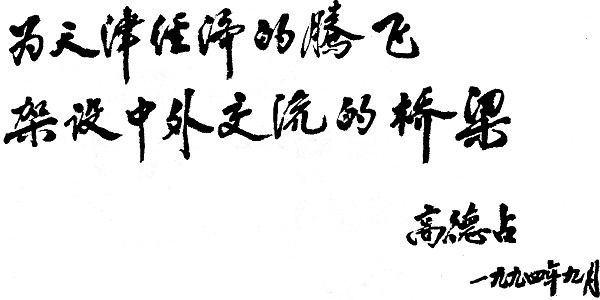 为天津经济的腾飞
架设中外交流的桥梁
高德占
一九九四年九月